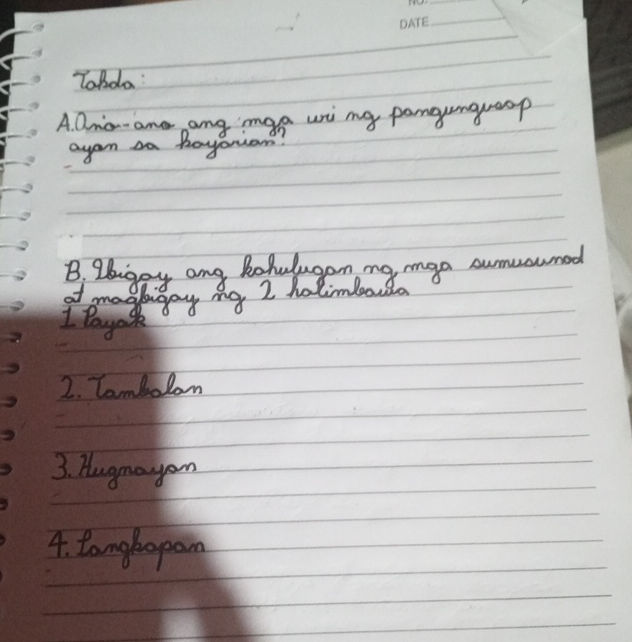 NO.
DATE
Takda:
A. Ano-ano ang mga uri ng pangungusap
ayon sa kayarian?
B. Ibigay ang kahulugan ng mga sumusunod
at magbigay ng 2 halimbawa
1 Payak
2. Tambalan
3. Hugnayan
4. Langkapan